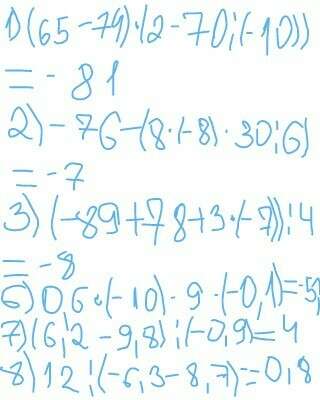 1) (65-74)·(2-70:(-10))
=-81
2) -76-(8·(-8)·30:6)
=-7
3) (-89+78+3·(-7)):4
=-8
6) 0 6·(-10)-9·(-0,1)=-5,
7) (6,2-9,8):(-0,9)=4
8) 12:(-6,3-8,7)=0,8